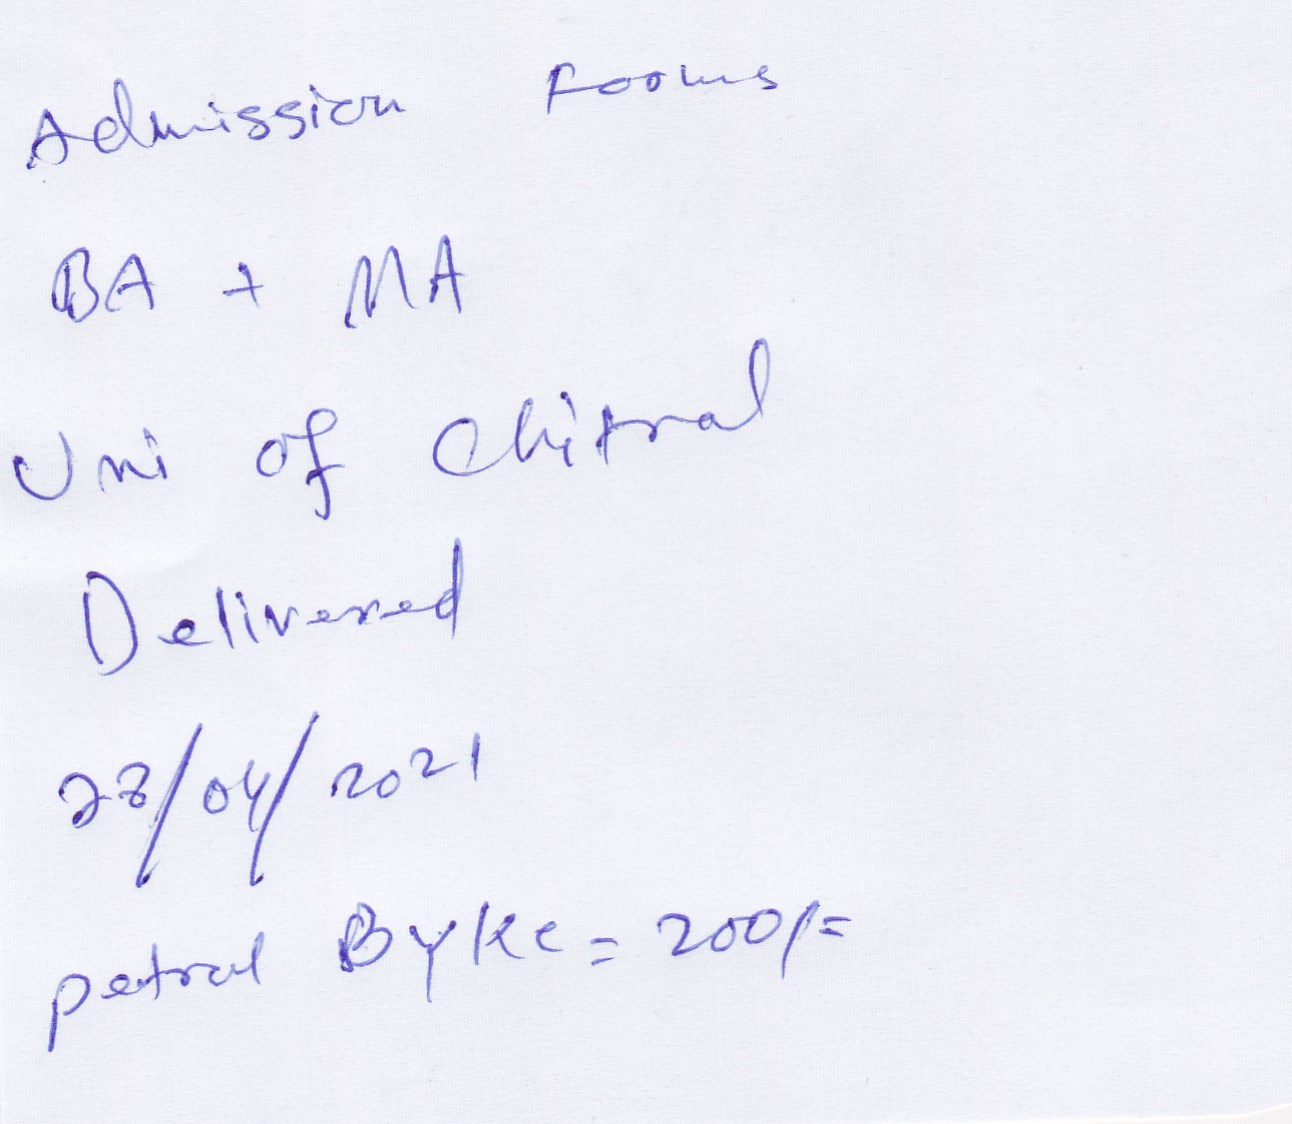 Admission Fooms
BA + MA
Uni of Chitral
Delivered
28/04/2021
petrol Byke = 200/=